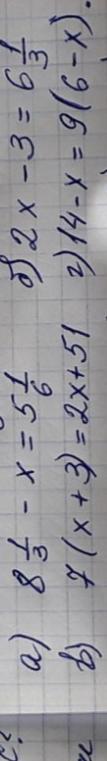 а) 8 1/3 - x = 5 1/6 б) 2x - 3 = 6 1/3
в) 7(x + 3) = 2x + 51 г) 14 - x = 9(6 - x).